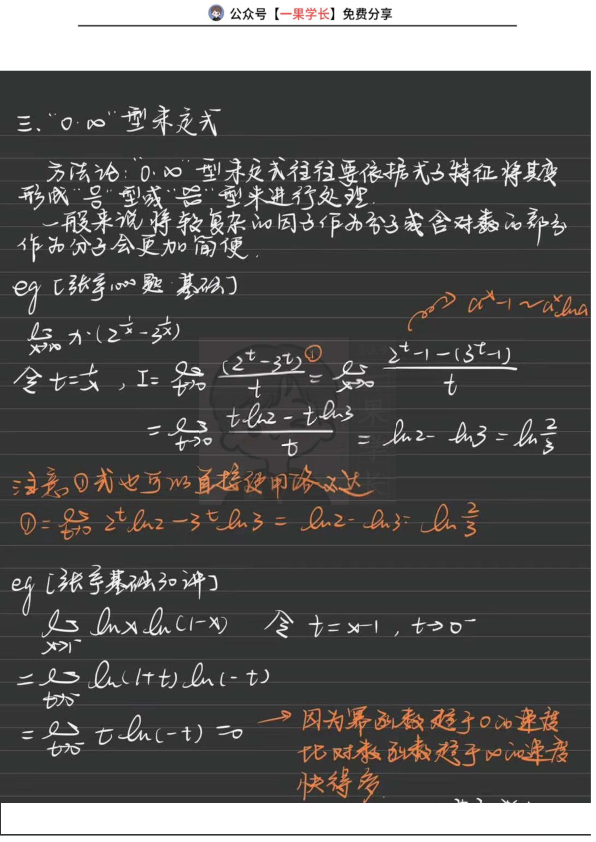 公众号【一果学长】免费分享
三、“0·∞”型未定式
方法论:“0·∞”型未定式往往要依据式子特征将其变
形成“0/0”型或“∞/∞”型来进行处理.
一般来说将较复杂的因子作为分子或含对数的部分
作为分子会更加简便.
eg [张宇1000题·基础]
lim x→∞ x·(2^(1/x)-3^(1/x))
a^x-1~a^x lna
令t=1/x , I= lim t→0 (2^t-3^t)/t ①= lim x→∞ (2^t-1-(3^t-1))/t
= lim t→0 (tln2-tln3)/t = ln2-ln3=ln 2/3
注意①式也可以直接使用洛必达
①= lim t→0 2^t ln2-3^t ln3 = ln2-ln3= ln 2/3
eg [张宇基础30讲]
lim x→1⁻ lnx ln(1-x) 令 t=x-1 , t→0⁻
= lim t→0⁻ ln(1+t) ln(-t)
= lim t→0⁻ t ln(-t) =0
→ 因为幂函数趋于0的速度
比对数函数趋于∞的速度
快得多.